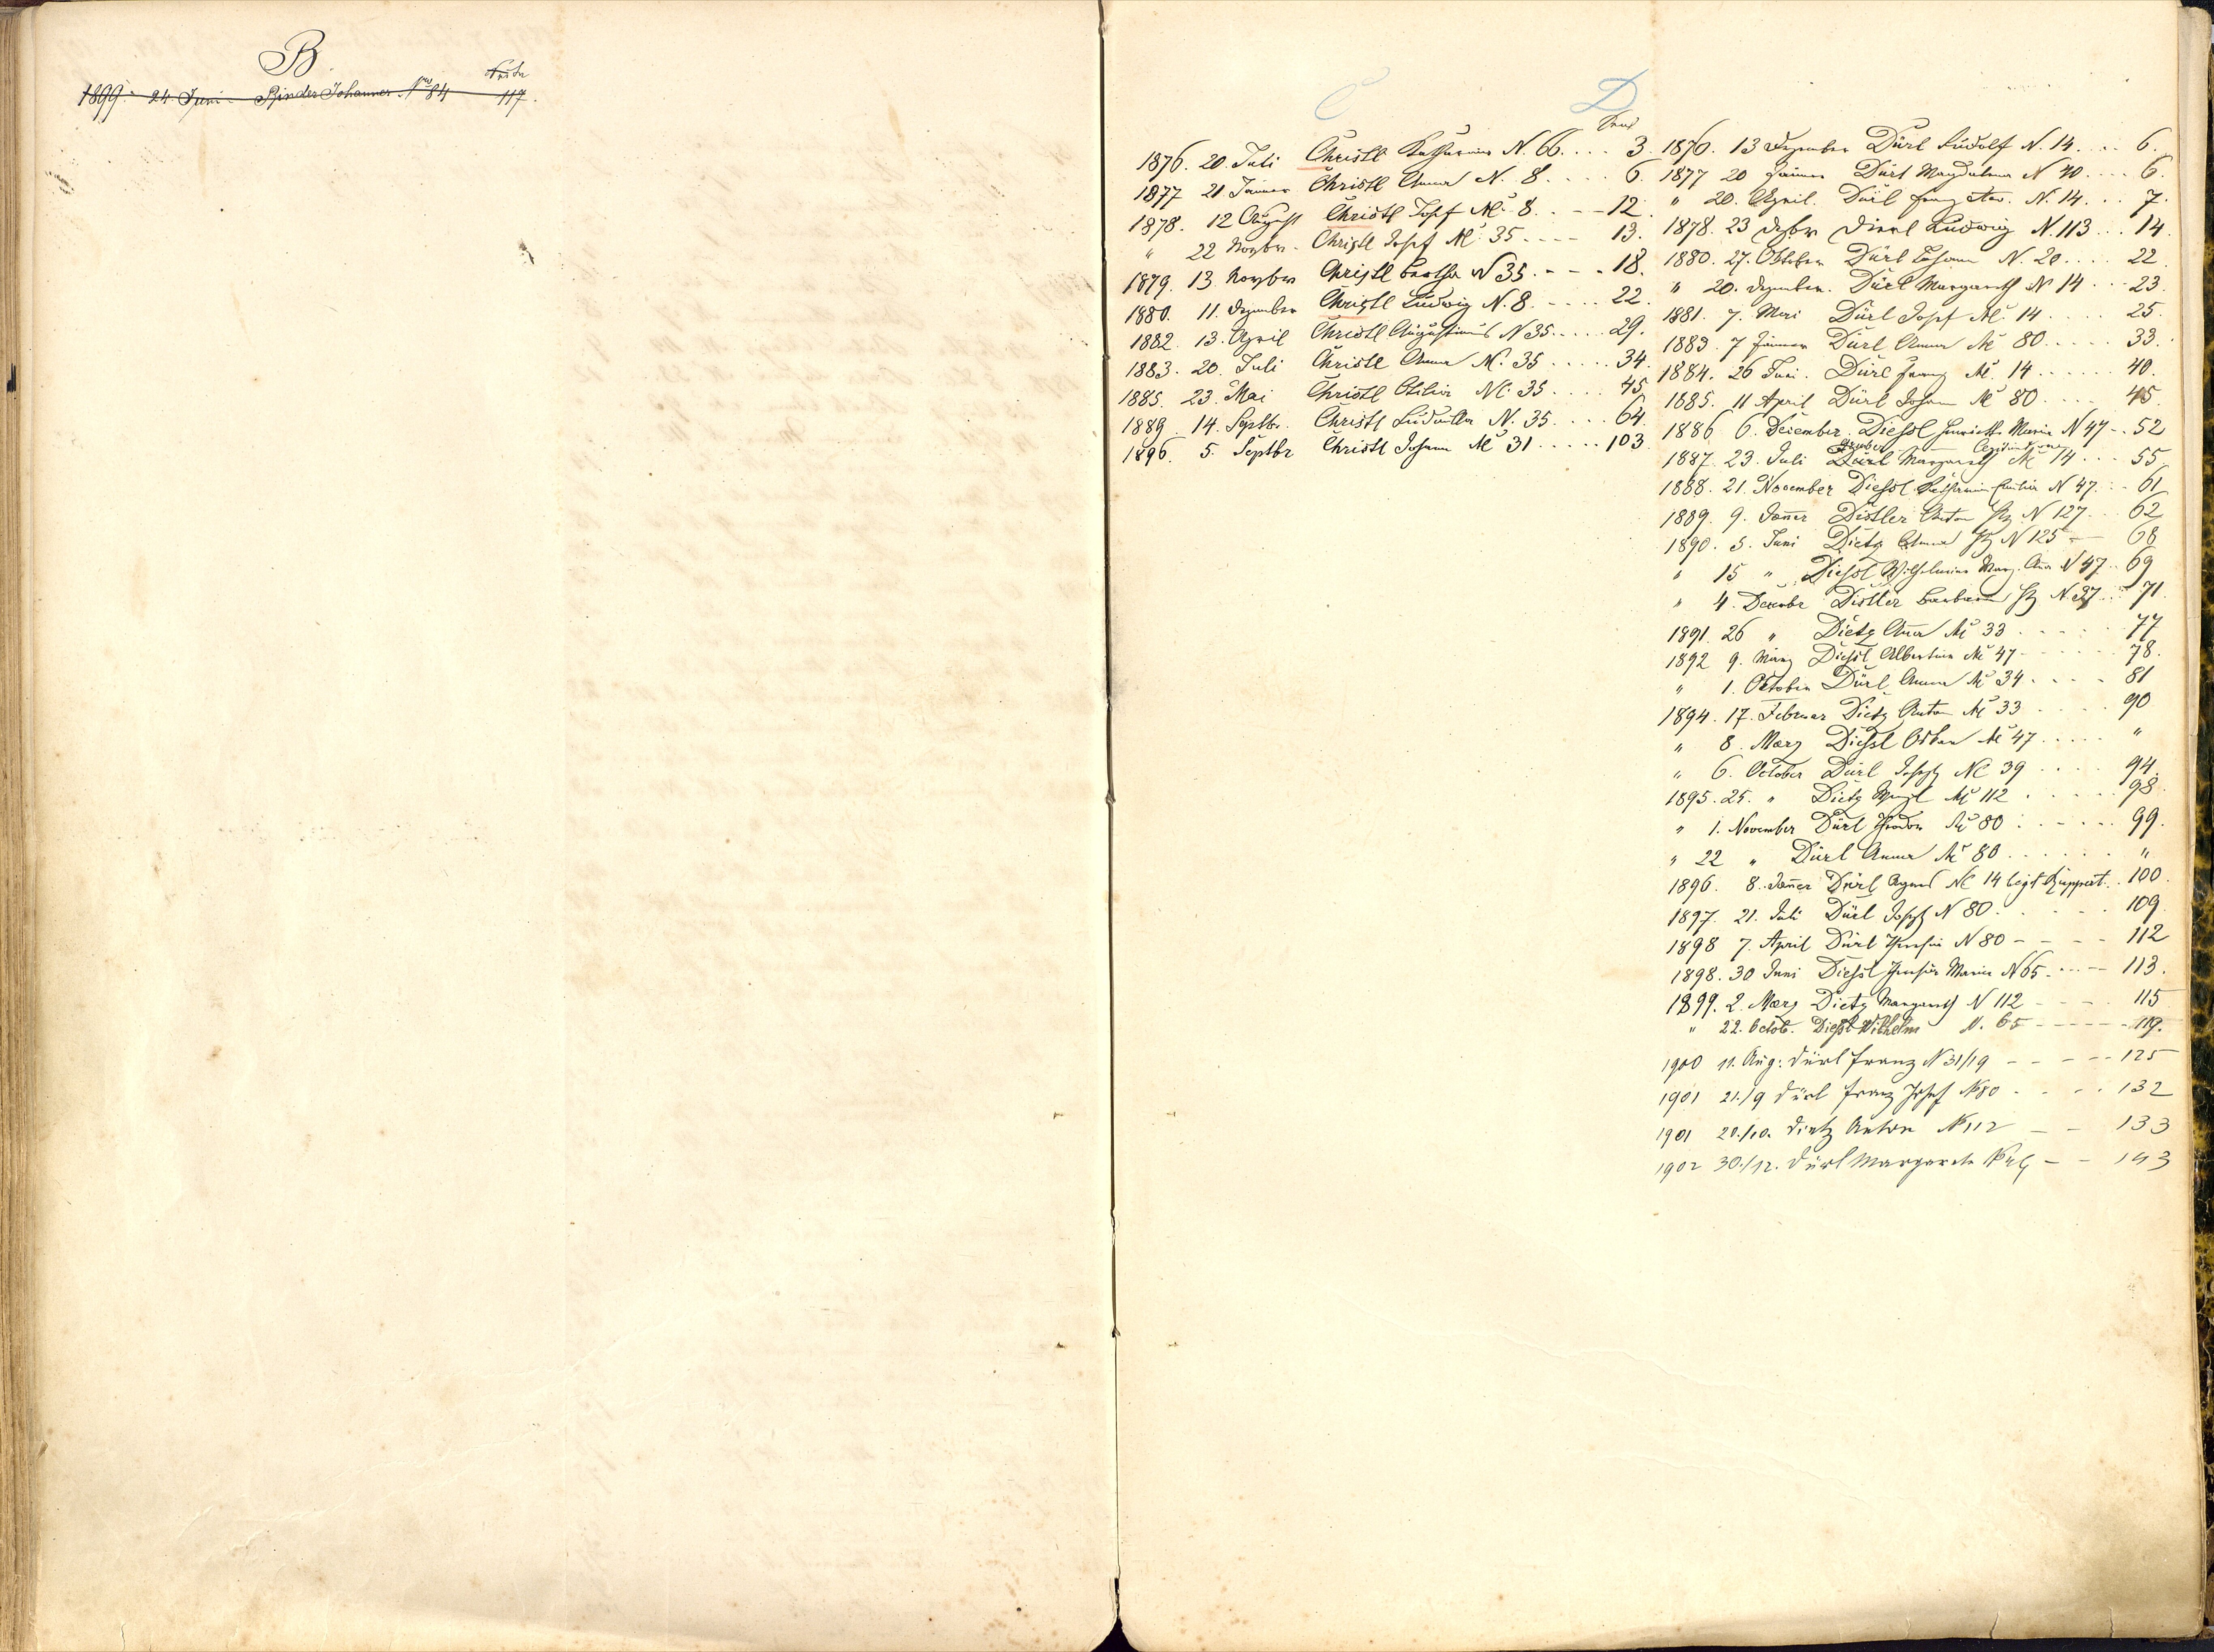 B
Seite
1899. 24 Juni Binder Johannes Nro 84 117.
C
1876. 20. Juli Christl Katharina N. 66. . . . 3.
1877 21 Jänner Christl Anna N. 8. . . . 6.
1878. 12 August Christl Josef Nc. 8. . - - 12.
" 22 Novbr. Christl Josef Nc. 35 - - - - 13.
1879. 13. Novber Christl Bertha N 35. - - - 18.
1880. 11. Dezember Christl Ludwig N. 8. - . . . 22.
1882. 13. April Christl Augustinus N 35. . . . 29.
1883. 20. Juli Christl Anna N. 35 . . . . . 34.
1885. 23. Mai Christl Otilia Nc. 35 . . . . 45.
1889. 14. Septbr. Christl Ludmilla N. 35. . . . . 64.
1896. 5. Septbr Christl Johann Nc 31 . . . . . 103
D
1876. 13 Dezember Dürl Rudolf N. 14. . . . 6.
1877 20 Jänner Dürl Magdalena N 40. . . . 6.
" 20. April. Dürl Franz N. 14. . . 7.
1878. 23 Dezbr Dierl Ludwig N. 113 . . . 14.
1880. 27. Oktober Dürl Johann N. 20. . . . 22.
" 20. Dezember. Dürl Margareth N 14 . . . 23.
1881. 7. Mai Dürl Josef Nc. 14. . . . . 25.
1883. 7 Jänner Dürl Anna Nc 80. . . . . 33.
1884. 26 Juni. Dürl Franz Nc. 14 . . . . . . 40.
1885. 11 April Dürl Johann Nc 80. . . . 45.
1886 6. Dezember Dießl Henriette Maria N 47 - . 52
1887. 23. Juli Dürl Margareth Nc 14 . . . 55.
1888. 21. November Dießl Katharina Emilia N 47. . . 61
1889. 9. Jänner Distler Anton N 127 . . . 62
1890. 5. Juni Dietz Anna N 125 - - 68
" 15 " Dießl Wilhelmine Marg. Anna N 47. . 69
" 4. Decembr Distler Barbara N. 27 . . . 71.
1891. 26 " Dietz Anna Nc 33 . . . . . 77
1892 9. März Dießl Albertina Nc 47 - . . . . . 78.
" 1. Oktober Dürl Anna Nc 34 . . . . 81
1894. 17. Februar Dietz Anton Nc 33 . . . . 90
" 8. März Dießl Nc 47 . . . . . "
" 6. October Dürl Joseph Nc 39 . . . . 94.
1895. 25. " Dietz Wenzl Nc 112 . . . . . 98.
" 1. November Dürl Theodor Nc 80 . . . . . . 99.
" 22 " Dürl Anna Nc 80. . . . . . "
1896. 8. Jänner Dürl Agnes Nc 14 legt Ruppert. . 100.
1897. 21. Juli Dürl Joseph N 80. . . . . . 109.
1898 7. April Dürl Theresia N 80 - - - - 112
1898. 30 Juni Dießl Theresia Maria N 65. . . . - - 113.
1899. 2. März Dietz Margareth N 112 - - - . 115
" 22. Octob. Dießl Wilhelm N. 65 - - - - - 119.
1900 11. Aug: Dürl Franz N 31/19 - - - - - 125
1901 21./9 Dürl Franz Josef N 80 - . - . . 132
1901 20./10. Dietz Anton N 112 - - 133
1902 30./12. Dürl Margareta - - 143